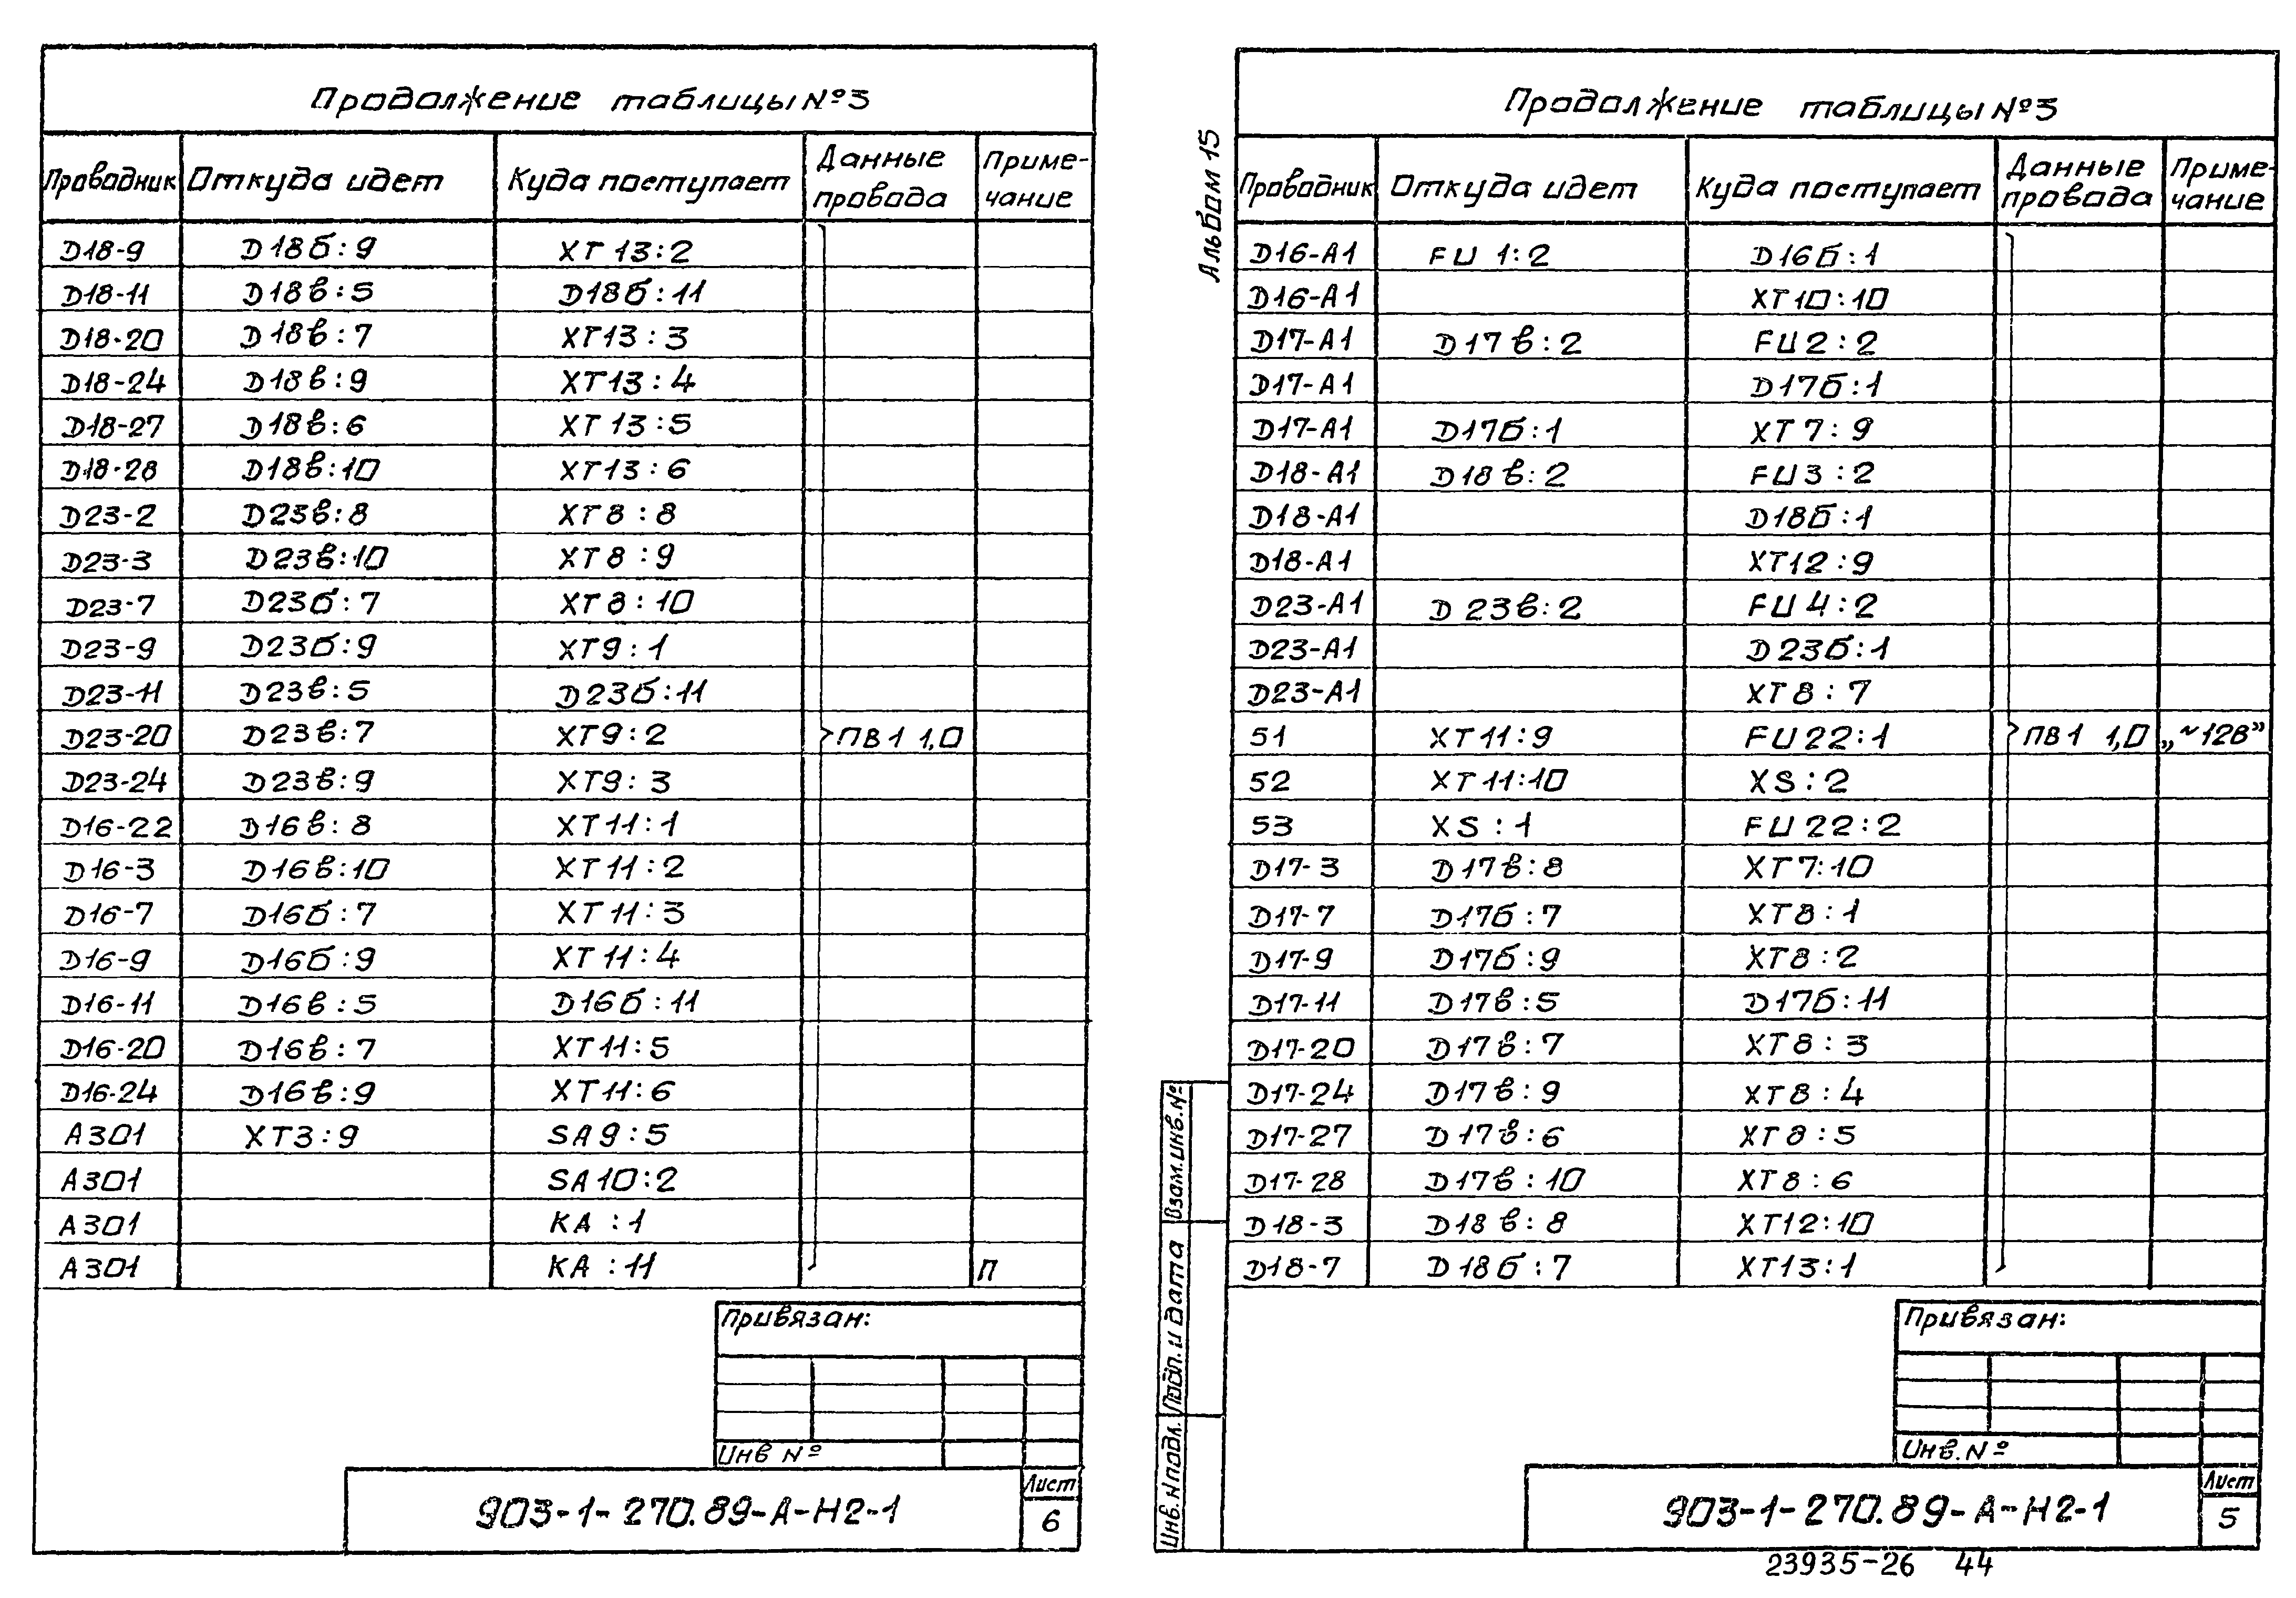 Продолжение таблицы №3
Проводник Откуда идет Куда поступает Данные провода Примечание
D18-9 D18б:9 XT13:2
D18-11 D18в:5 D18б:11
D18-20 D18в:7 XT13:3
D18-24 D18в:9 XT13:4
D18-27 D18в:6 XT13:5
D18-28 D18в:10 XT13:6
D23-2 D23в:8 XT8:8
D23-3 D23в:10 XT8:9
D23-7 D23б:7 XT8:10
D23-9 D23б:9 XT9:1
D23-11 D23в:5 D23б:11
D23-20 D23в:7 XT9:2 ПВ1 1,0
D23-24 D23в:9 XT9:3
D16-22 D16в:8 XT11:1
D16-3 D16в:10 XT11:2
D16-7 D16б:7 XT11:3
D16-9 D16б:9 XT11:4
D16-11 D16в:5 D16б:11
D16-20 D16в:7 XT11:5
D16-24 D16в:9 XT11:6
A301 XT3:9 SA9:5
A301 SA10:2
A301 KA:1
A301 KA:11 П
Привязан:
Инв №
903-1-270.89-А-Н2-1
Лист
6
Альбом 15
Продолжение таблицы №3
Проводник Откуда идет Куда поступает Данные провода Примечание
D16-A1 FU1:2 D16б:1
D16-A1 XT10:10
D17-A1 D17в:2 FU2:2
D17-A1 D17б:1
D17-A1 D17б:1 XT7:9
D18-A1 D18в:2 FU3:2
D18-A1 D18б:1
D18-A1 XT12:9
D23-A1 D23в:2 FU4:2
D23-A1 D23б:1
D23-A1 XT8:7
51 XT11:9 FU22:1 ПВ1 1,0 „~12В”
52 XT11:10 XS:2
53 XS:1 FU22:2
D17-3 D17в:8 XT7:10
D17-7 D17б:7 XT8:1
D17-9 D17б:9 XT8:2
D17-11 D17в:5 D17б:11
D17-20 D17в:7 XT8:3
D17-24 D17в:9 XT8:4
D17-27 D17в:6 XT8:5
D17-28 D17в:10 XT8:6
D18-3 D18в:8 XT12:10
D18-7 D18б:7 XT13:1
Взам.инв.№
Подп. и дата
Инв.N подл.
Привязан:
Инв.№
903-1-270.89-А-Н2-1
Лист
5
23935-26 44